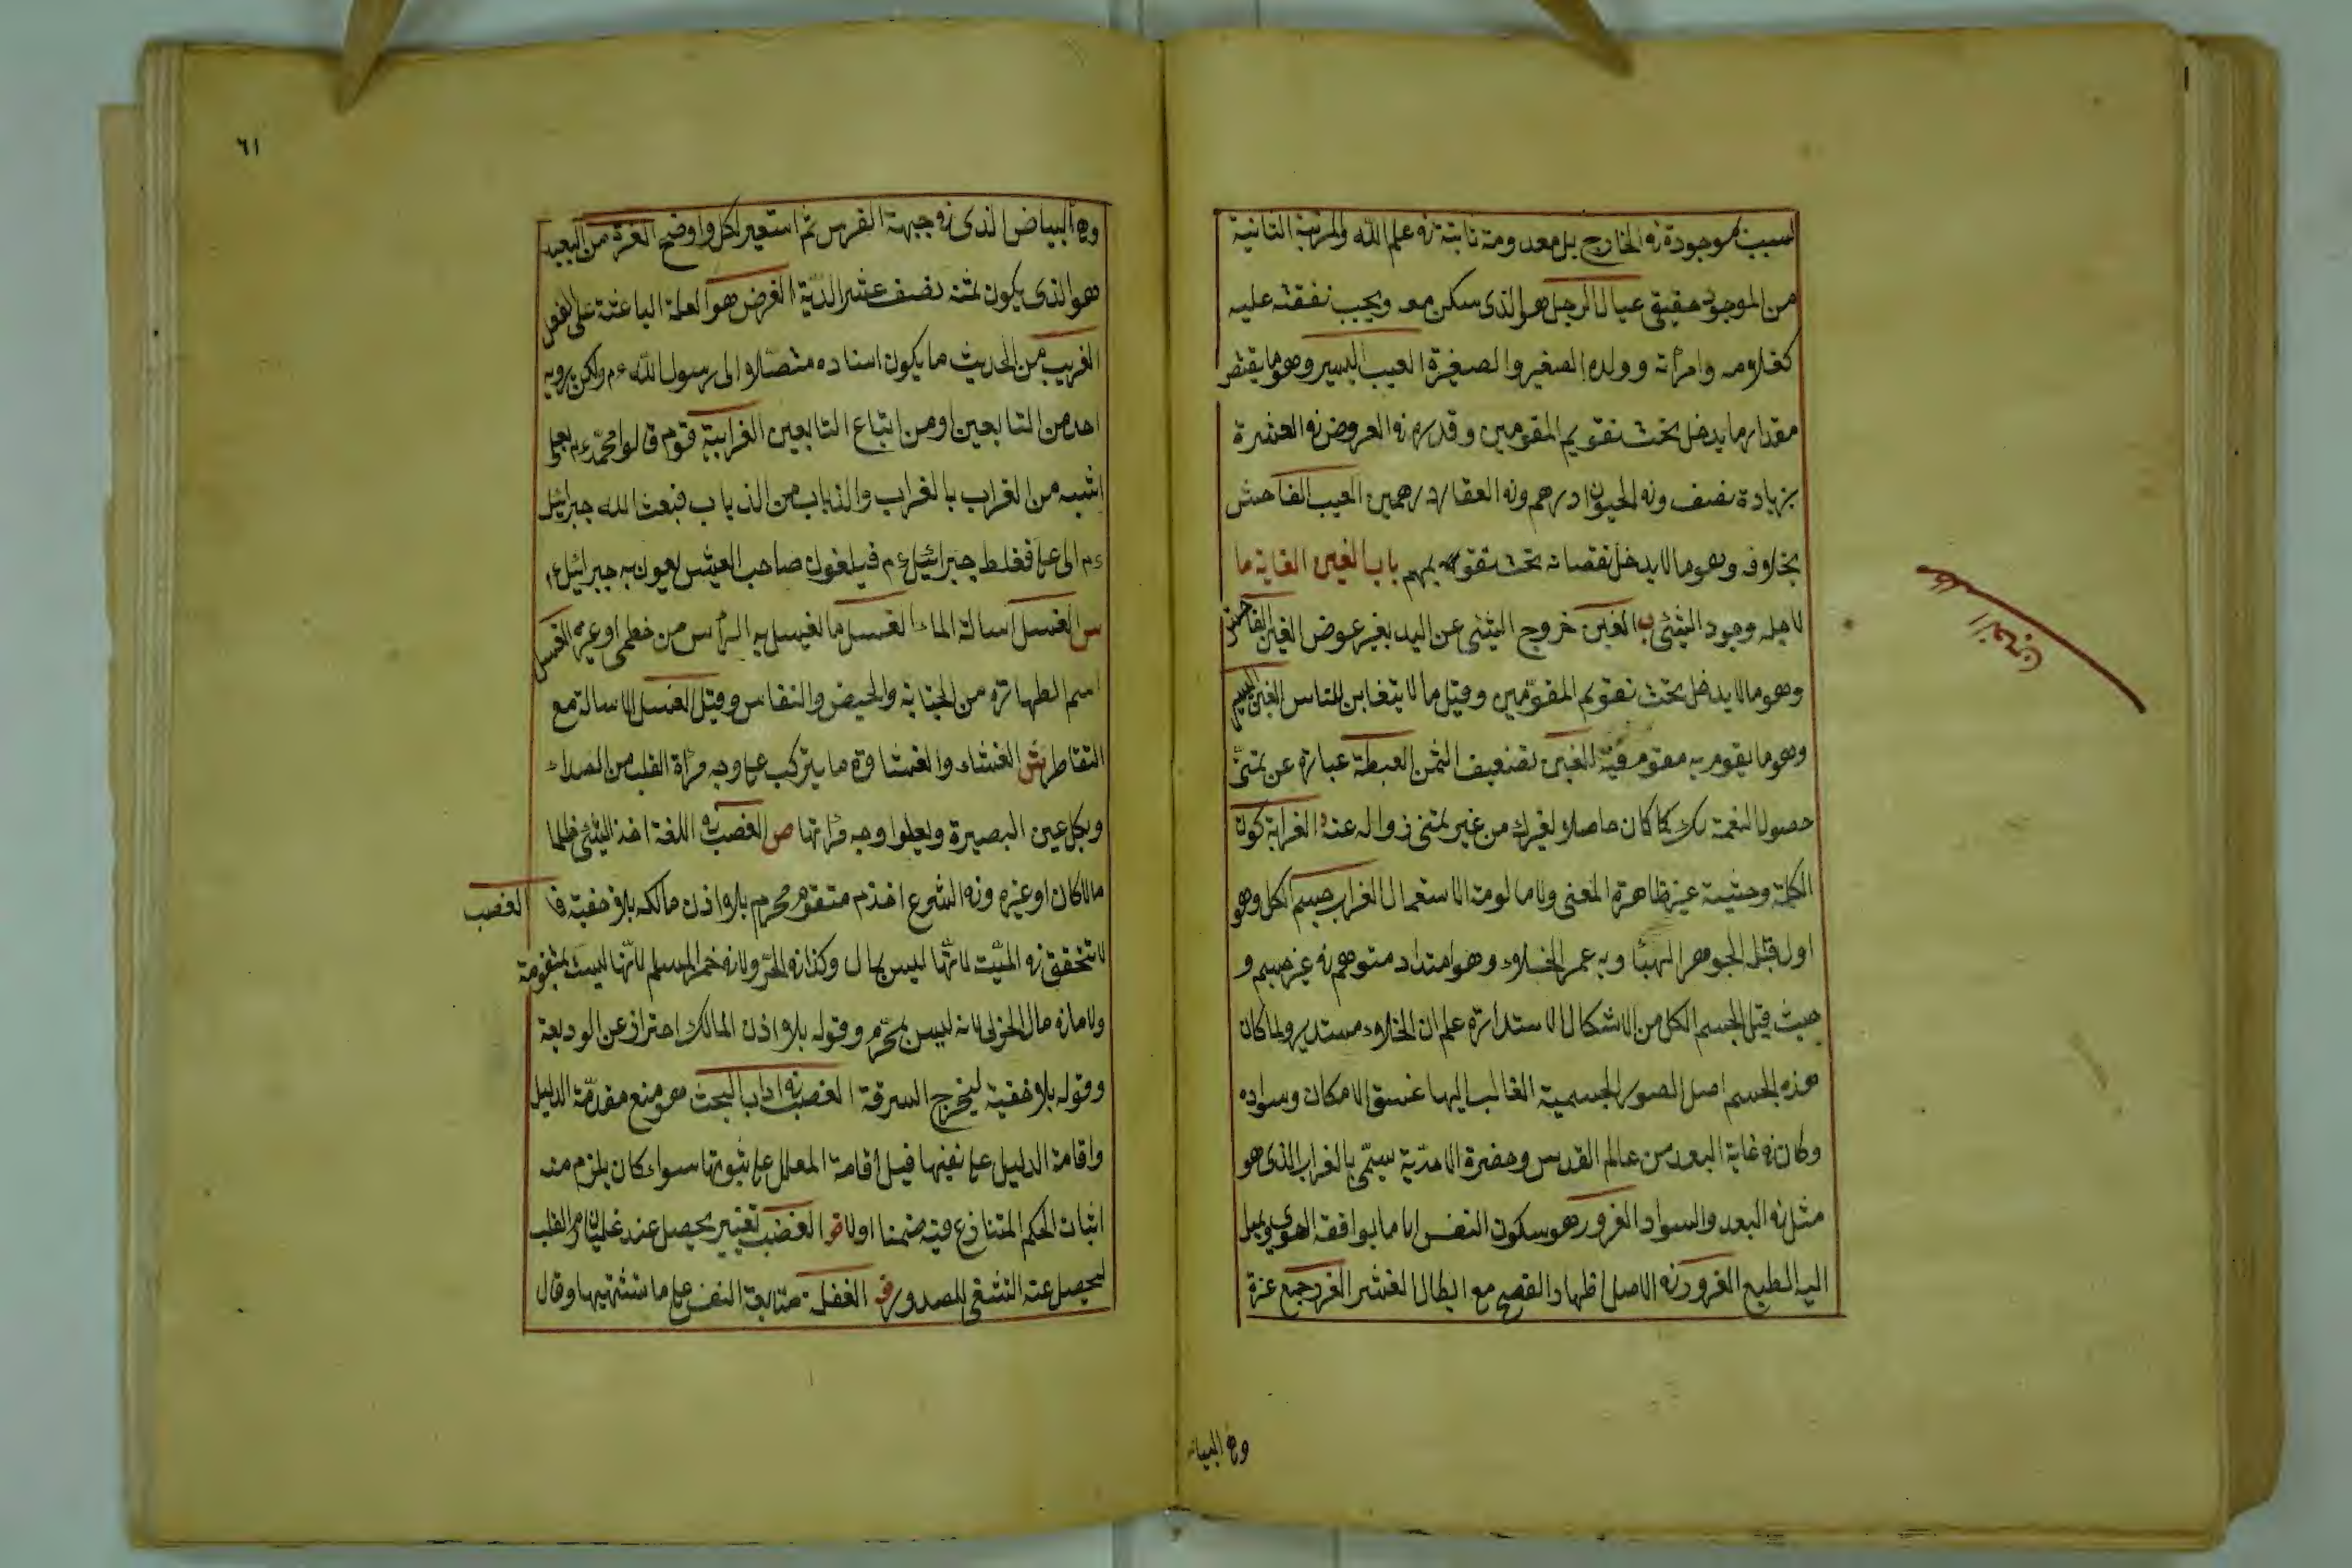 ليست بموجودة في الخارج بل معدومة ثابتة في علم الله والمرتبة الثانية
من الموجود حقيقي عيال الرجل هو الذي سكن معه ويجب نفقته عليه
كغلامه وامرأته وولده الصغير والصغيرة العيب اليسير وهو ما ينقص
مقدار ما يدخل تحت تقويم المقومين وقدره في العروض في العشرة
بزيادة نصف وفي الحيوان درهم وفي العقار درهمين العيب الفاحش
بخلافه وهو ما لا يدخل نقصانه تحت تقويمهم باب الغين الغاية ما
لاجله وجود الشئ ب الغبن خروج الشئ عن اليد بغير عوض الغبن الفاحش
وهو ما لا يدخل تحت تقويم المقوّمين وقيل ما لا يتغابن الناس الغبن اليسير
وهو ما يقوم به مقوم فيه الغبن تضعيف الثمن الغبطة عبارة عن تمنّى
حصول النعمة لك كما كان حاصلا لغيرك من غير تمنى زواله عنه ر الغرابة كون
الكلمة وحشية غير ظاهرة المعنى ولا مالومة الاستعمال الغراب جسم الكل وهو
اول قبل الجوهر الهبا وبه عمر الخلاء وهو امتداد متوهم في غير جسم و
حيث قبل الجسم الكل من الاشكال الاستدارة علم ان الخلاء مستدير ولما كان
هذه الجسم اصل الصور الجسمية الغالب اليها غسق الامكان وسواده
وكان في غاية البعد من عالم القدس وحضرة الاحدّية سمّى بالغراب الذى هو
مثل في البعد والسواد الغرور هو سكون النفس الا ما يوافقه الهوى ويميل
اليه الطبع الغرور في الاصل اظهار القصح مع ابطال الغش الغرر جمع غزة
وهى البيان
الغين
وهى البياض الذى في جبهة الفرس ثم استعير لكل واوضح الغرة من العبيد
هو الذى يكون ثمنه نصف عشر الديّة الغرض هو العلة الباعثة على الفعل
الغريب من الحديث ما يكون اسناده متصّلا الى رسول الله ءم ولكن يرويه
احد من التابعين او من اتباع التابعين الغرابية قوم قالوا محمّد ءم بعلى
اشبه من الغراب بالغراب والذباب من الذباب فبعث الله جبرائيل
ءم الى على فغلط جبرائيل ءم فيلعنون صاحب الريش يعنون به جبرائيل ء
س الغسل اسالة الماء الغسل ما الغيسل به الرأس من خطمى او غيره الغسل
اسم الطهارة من الجنابة والحيض والنفاس وقيل الغسل الاسالة مع
التقاطر ش الغشاء والغشاوة ما يتركب على وجه مرآة القلب من الصداء
وبكل عين البصيرة ويعلوا وجه مرآتها ص الغصب في اللغة اخذ الشئ ظلما
مالا كان او غيره وفي الشرع اخذ م متقوم محرم بلا اذن مالكه بلا خفية فا الغصب
لا تحقق في الميّت لانّها ليس بمال وكذا في الحرّ ولا في خمر المسلم لانّها ليست بمتقومة
ولا ما في مال الحربى لانه ليس بمحرّم وقوله بلا اذن المالك احتراز عن الوديعة
وقوله بلا خفية ليخرج السرقة الغصب في اداب البحث هو منع مقدمّة الدليل
واقامة الدليل على نفيها قبل اقامة المعلل على ثبوتها سواء كان يلزم منه
اثبات الحكم المتنازع فيه ضمنا اولا ض الغضب تغيير يحصل عند غليان دم القلب
ليحصل عنه التشفى للصدور ف الغفلة متابعة النفس على ما تشتهيها وقال
٦١